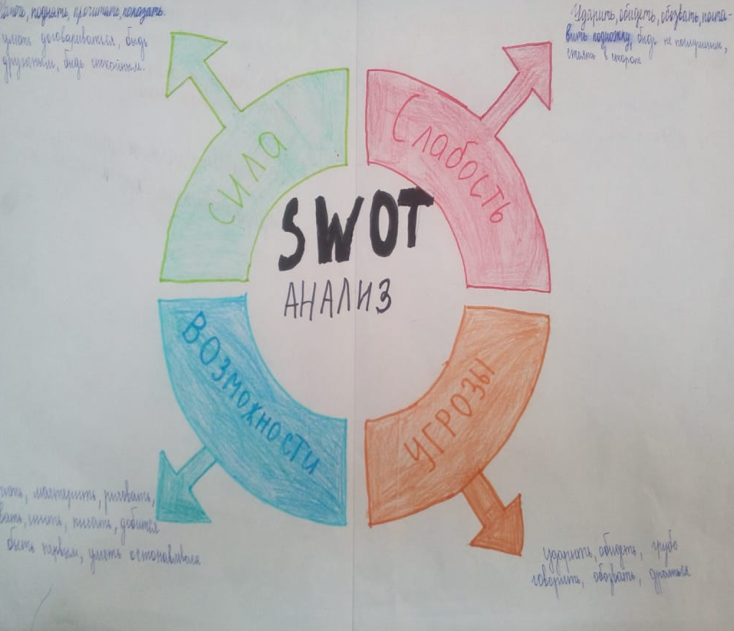 поднять, прочитать, показать.
уметь договариваться, будь
дружелюбен, будь спокойным.
Ударить, обидеть, обозвать, поста-
вить подножку, будь не послушным,
СИЛА
Слабость
SWOT
АНАЛИЗ
ВОЗМОЖНОСТИ
УГРОЗЫ
мастерить, рисовать,
писать, добится
быть первым, уметь
ударить, обидеть, грубо
говорить, обозвать, драться